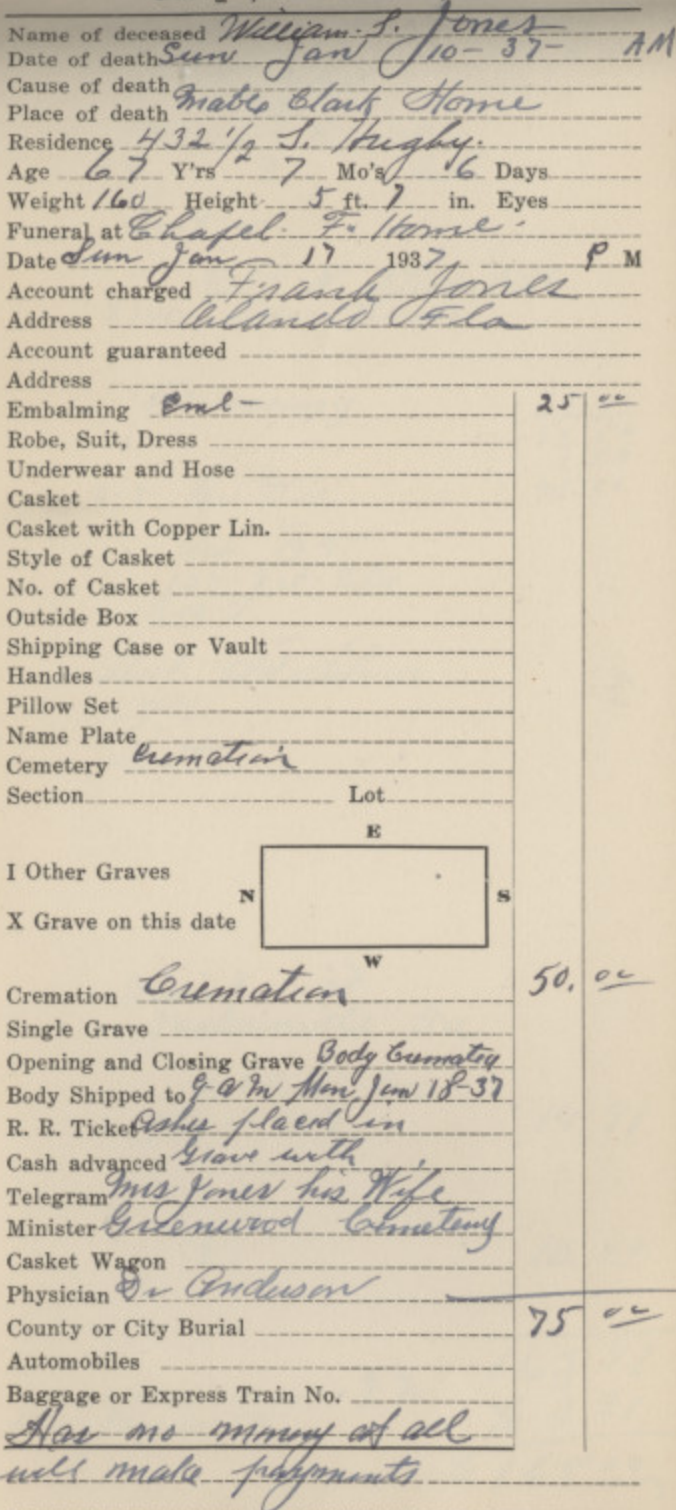 Name of deceased William. S. Jones
Date of death Sun Jan 10-37- AM
Cause of death
Place of death Mable Clark Home
Residence 432 1/2 S. Hughy.
Age 67 Y'rs 7 Mo's 6 Days
Weight 160 Height 5 ft. 7 in. Eyes
Funeral at Chapel. F. Home.
Date Sun Jan 17 1937 P M
Account charged Frank Jones
Address Orlando Fla
Account guaranteed
Address
Embalming Eml- 25 00
Robe, Suit, Dress
Underwear and Hose
Casket
Casket with Copper Lin.
Style of Casket
No. of Casket
Outside Box
Shipping Case or Vault
Handles
Pillow Set
Name Plate
Cemetery Cremation
Section Lot
E
I Other Graves
N S
X Grave on this date
W
Cremation Cremation 50. 00
Single Grave
Opening and Closing Grave Body Cremated
Body Shipped to 9 a m Mon, Jan 18-37
R. R. Ticket Ashes placed in
Cash advanced Grave with
Telegram Mrs Jones his Wife
Minister Greenwood Cemetery
Casket Wagon
Physician Dr Anderson
County or City Burial 75 00
Automobiles
Baggage or Express Train No.
Has no money at all
will make payments